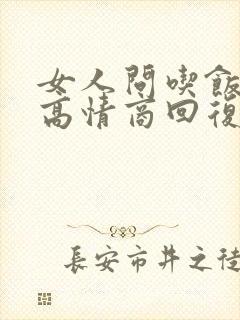 女人問喫飯
高情商回復
長安市井之徒